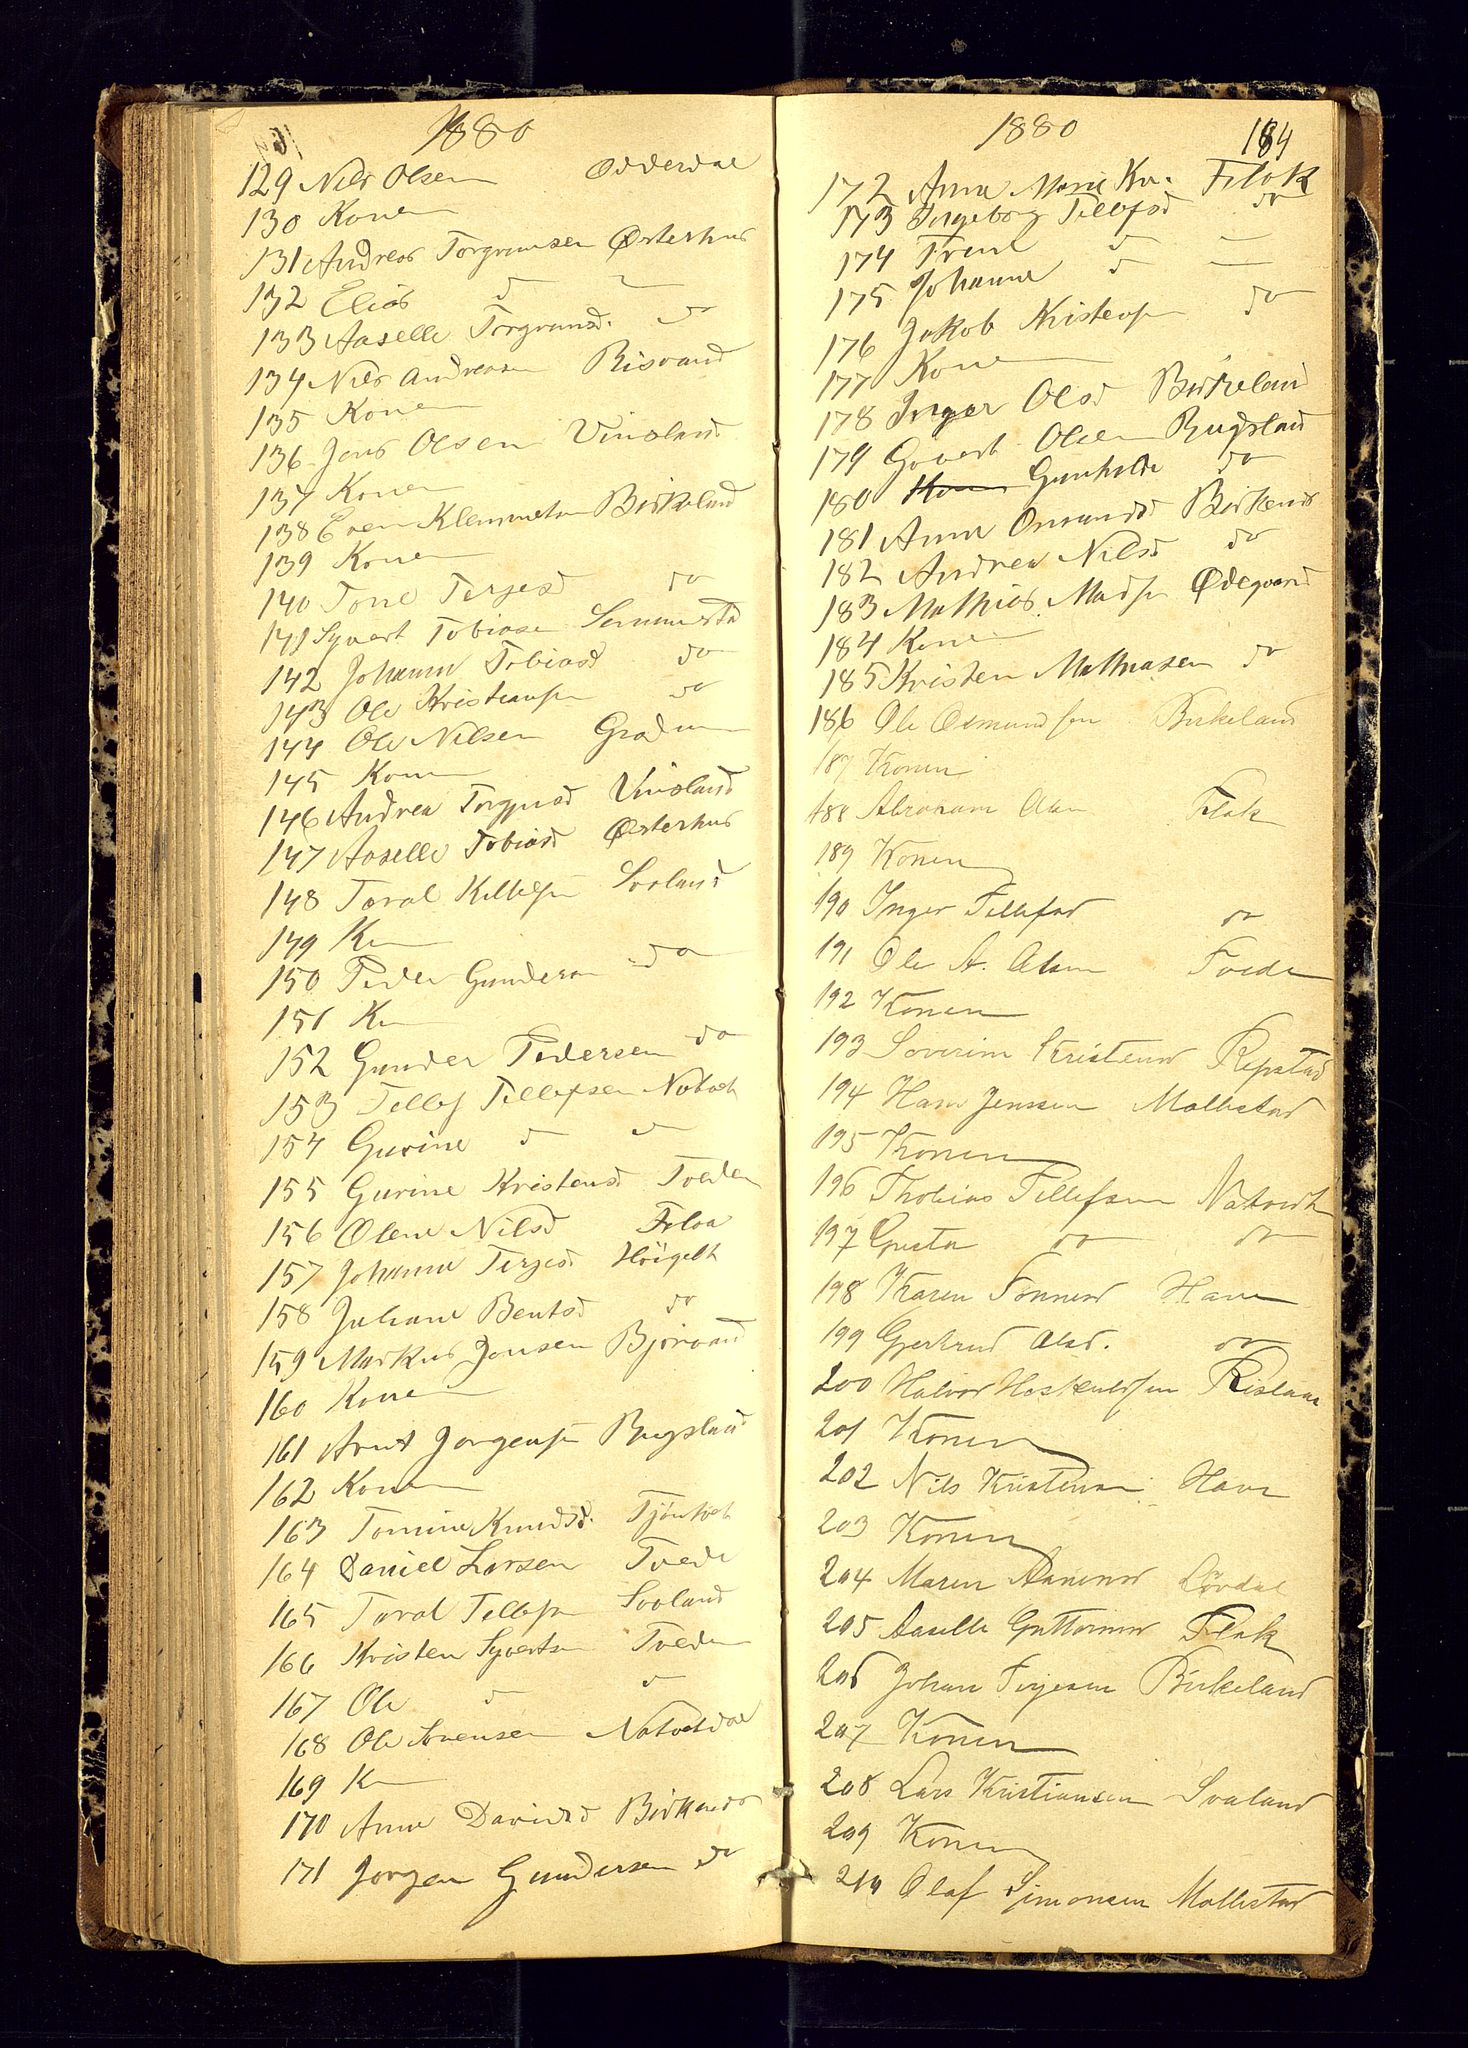 1880
129 Nils Olsen Odderdal
130 Konen
131 Andreas Torgrimsen Østerhus
132 Elias d —
133 Aaselle Torgrimsd. do
134 Nils Andreasen Risvand
135 Konen
136 Jens Olsen Vinsland
137 Konen
138 Even Klemmetsn Birkeland
139 Konen
140 Tone Terjesd do
141 Syvert Tobiasen
142 Johanne Tobiasd do
143 Ole Kristiansn do
144 Ole Nilsen
145 Konen
146 Andrea Vinsland
147 Aaselle Tobiasd Østerhus
148 Taral Kittelsn Svaland
149 Kn
150 Peder Gundersn do
151 Kn
152 Gunder Pedersen do
153 Tellef Tellefsen Natvet
154 Gurine d —
155 Gurine Kristensd Tveden
156 Olene Nilsd
157 Johanne Terjesd Höigelt
158 Juliane Bentsd do
159 Markus Jensen Bjorvand
160 Konen
161 Arnt Jørgensn Bugsland
162 Konen
163 Tomine Knudsd.
164 Daniel Larsen Tvede
165 Taral Tellefsn Svaland
166 Kristen Syvertsn Tveden
167 Ole d d
168 Ole Svensen Natvetdal
169 Kn
170 Anne Davidsd Birkenes
171 Jørgen Gundersen do
1880 184
172 Anne Marie Kr. Flak
173 Ingeborg Tellefsd do
174 d —
175 Johanne d —
176 Jakob Kristensn do
177 Kone
178 Inger Olsd Birkeland
179 Govert Olsen Bugsland
180 Gunhilde do
181 Anne Osmundsd Birkenes
182 Andrea Nilsd do
183 Mathias Madsn Ødegaard
184 Konen
185 Kristen Mathiasen do
186 Ole Osmundsen Birkeland
187 Konen
188 Abraham Olsn Flak
189 Konen
190 Inger Tellefsd do
191 Ole A. Olsen Tvede
192 Konen
193 Soverine Kristensd Repstad
194 Hans Jenssen Mollestad
195 Konen
196 Thobias Tellefsen Natvedt
197 Gusta do do
198 Karen Tønnesd Have
199 Gjertrud Olsd. do
200 Halvor Hoskuldsen Risland
201 Konen
202 Nils Kristensen Have
203 Konen
204 Maren Aanensd Lövdal
205 Aaselle Guttormsd Flak
206 Johan Terjesen Birkeland
207 Konen
208 Lars Kristiansen Svaland
209 Konen
210 Olaf Simonsen Mollestad